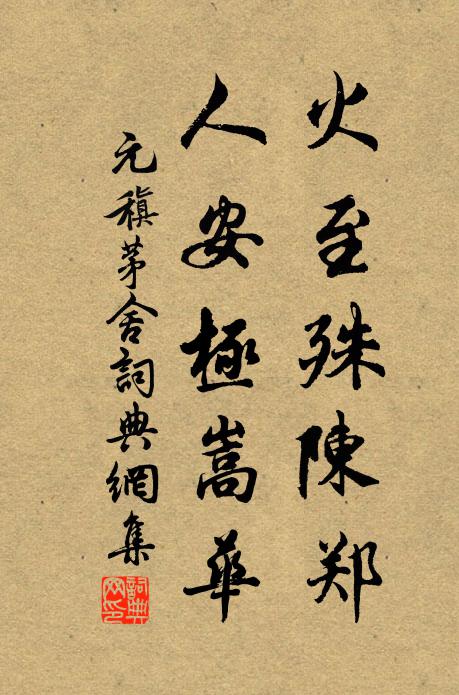 火至殊陳郑
人安極嵩華
元稹茅舍詞典網集
詞典网印